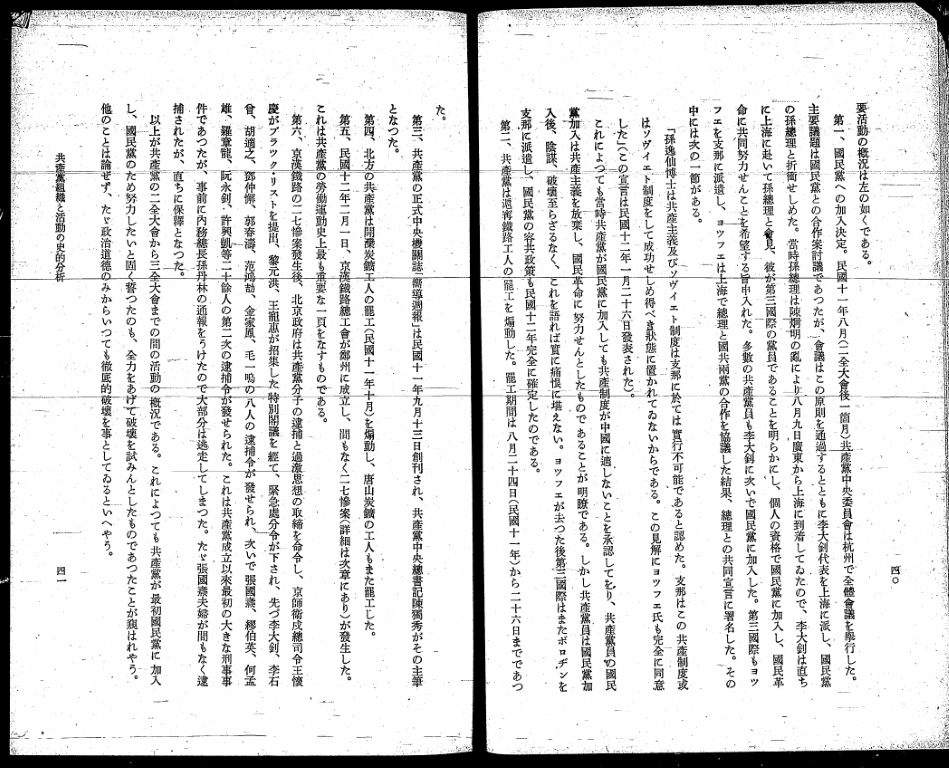 要活動の概況は左の如くである。
第一、國民黨への加入決定。民國十一年八月(二全大會後一箇月)共產黨中央委員會は杭州で全體會議を舉行した。
主要議題は國民黨との合作案討議であつたが、會議はこの原則を通過するとともに李大釗代表を上海に派し、國民黨
の孫總理と折衝せしめた。當時孫總理は陳烱明の亂により八月九日廣東から上海に到着してゐたので、李大釗は直ち
に上海に赴いて孫總理と會見、彼が第三國際の黨員であることを明らかにし、個人の資格で國民黨に加入し、國民革
命に共同努力せんことを希望する旨申入れた。多數の共產黨員も李大釗に次いで國民黨に加入した。第三國際もヨツ
フエを支那に派遣し、ヨツフエは上海で總理と國共兩黨の合作を協議した結果、總理との共同宣言に署名した。その
中には次の一節がある。
「孫逸仙博士は共產主義及びソヴイエト制度は支那に於ては實行不可能であると認めた。支那はこの共產制度或
はソヴイエト制度をして成功せしめ得べき狀態に置かれてゐないからである。この見解にヨツフエ氏も完全に同意
した」(この宣言は民國十二年一月二十六日發表された)。
これによつても當時共產黨が國民黨に加入しても共產制度が中國に適しないことを承認してをり、共產黨員の國民
黨加入は共產主義を放棄し、國民革命に努力せんとしたものであることが明瞭である。しかし共產黨員は國民黨加
入後、陰謀、破壞至らざるなく、これを語れば實に痛恨に堪えない。ヨツフエが去つた後第三國際はまたボロヂンを
支那に派遣し、國民黨の容共政策も民國十二年完全に確定したのである。
第二、共產黨は滬寧鐵路工人の罷工を煽動した。罷工期間は八月二十四日(民國十一年)から二十六日までであつ
四〇
た。
第三、共產黨の正式中央機關誌「嚮導週報」は民國十一年九月十三日創刊され、共產黨中央總書記陳獨秀がその主筆
となつた。
第四、北方の共產黨は開灤炭鑛工人の罷工(民國十一年十月)を煽動し、唐山炭鑛の工人もまた罷工した。
第五、民國十二年二月一日、京漢鐵路總工會が鄭州に成立し、間もなく二七慘案(詳細は次章にあり)が發生した。
これは共產黨の勞働運動史上最も重要な一頁をなすものである。
第六、京漢鐵路の二七慘案發生後、北京政府は共產黨分子の逮捕と過激思想の取締を命令し、京師衛戍總司令王懷
慶がブラツク・リストを提出、黎元洪、王寵惠が招集した特別閣議を經て、緊急處分令が下され、先づ李大釗、李石
曾、胡適之、鄧仲澥、郭春濤、范鴻劼、金家鳳、毛一鳴の八人の逮捕令が發せられ、次いで張國燾、繆伯英、何孟
雄、羅章龍、阮永釗、許興凱等二十餘人の第二次の逮捕令が發せられた。これは共產黨成立以來最初の大きな刑事事
件であつたが、事前に內務總長孫丹林の通報をうけたので大部分は逃走してしまつた。たゞ張國燾夫婦が間もなく逮
捕されたが、直ちに保釋となつた。
以上が共產黨の二全大會から三全大會までの間の活動の槪況である。これによつても共產黨が最初國民黨に加入
し、國民黨のため努力したいと固く誓つたのも、全力をあげて破壞を試みんとしたものであつたことが窺はれやう。
他のことは論ぜず、たゞ政治道德のみからいつても徹底的破壞を事としてゐるといへやう。
共產黨組織と活動の史的分析
四一